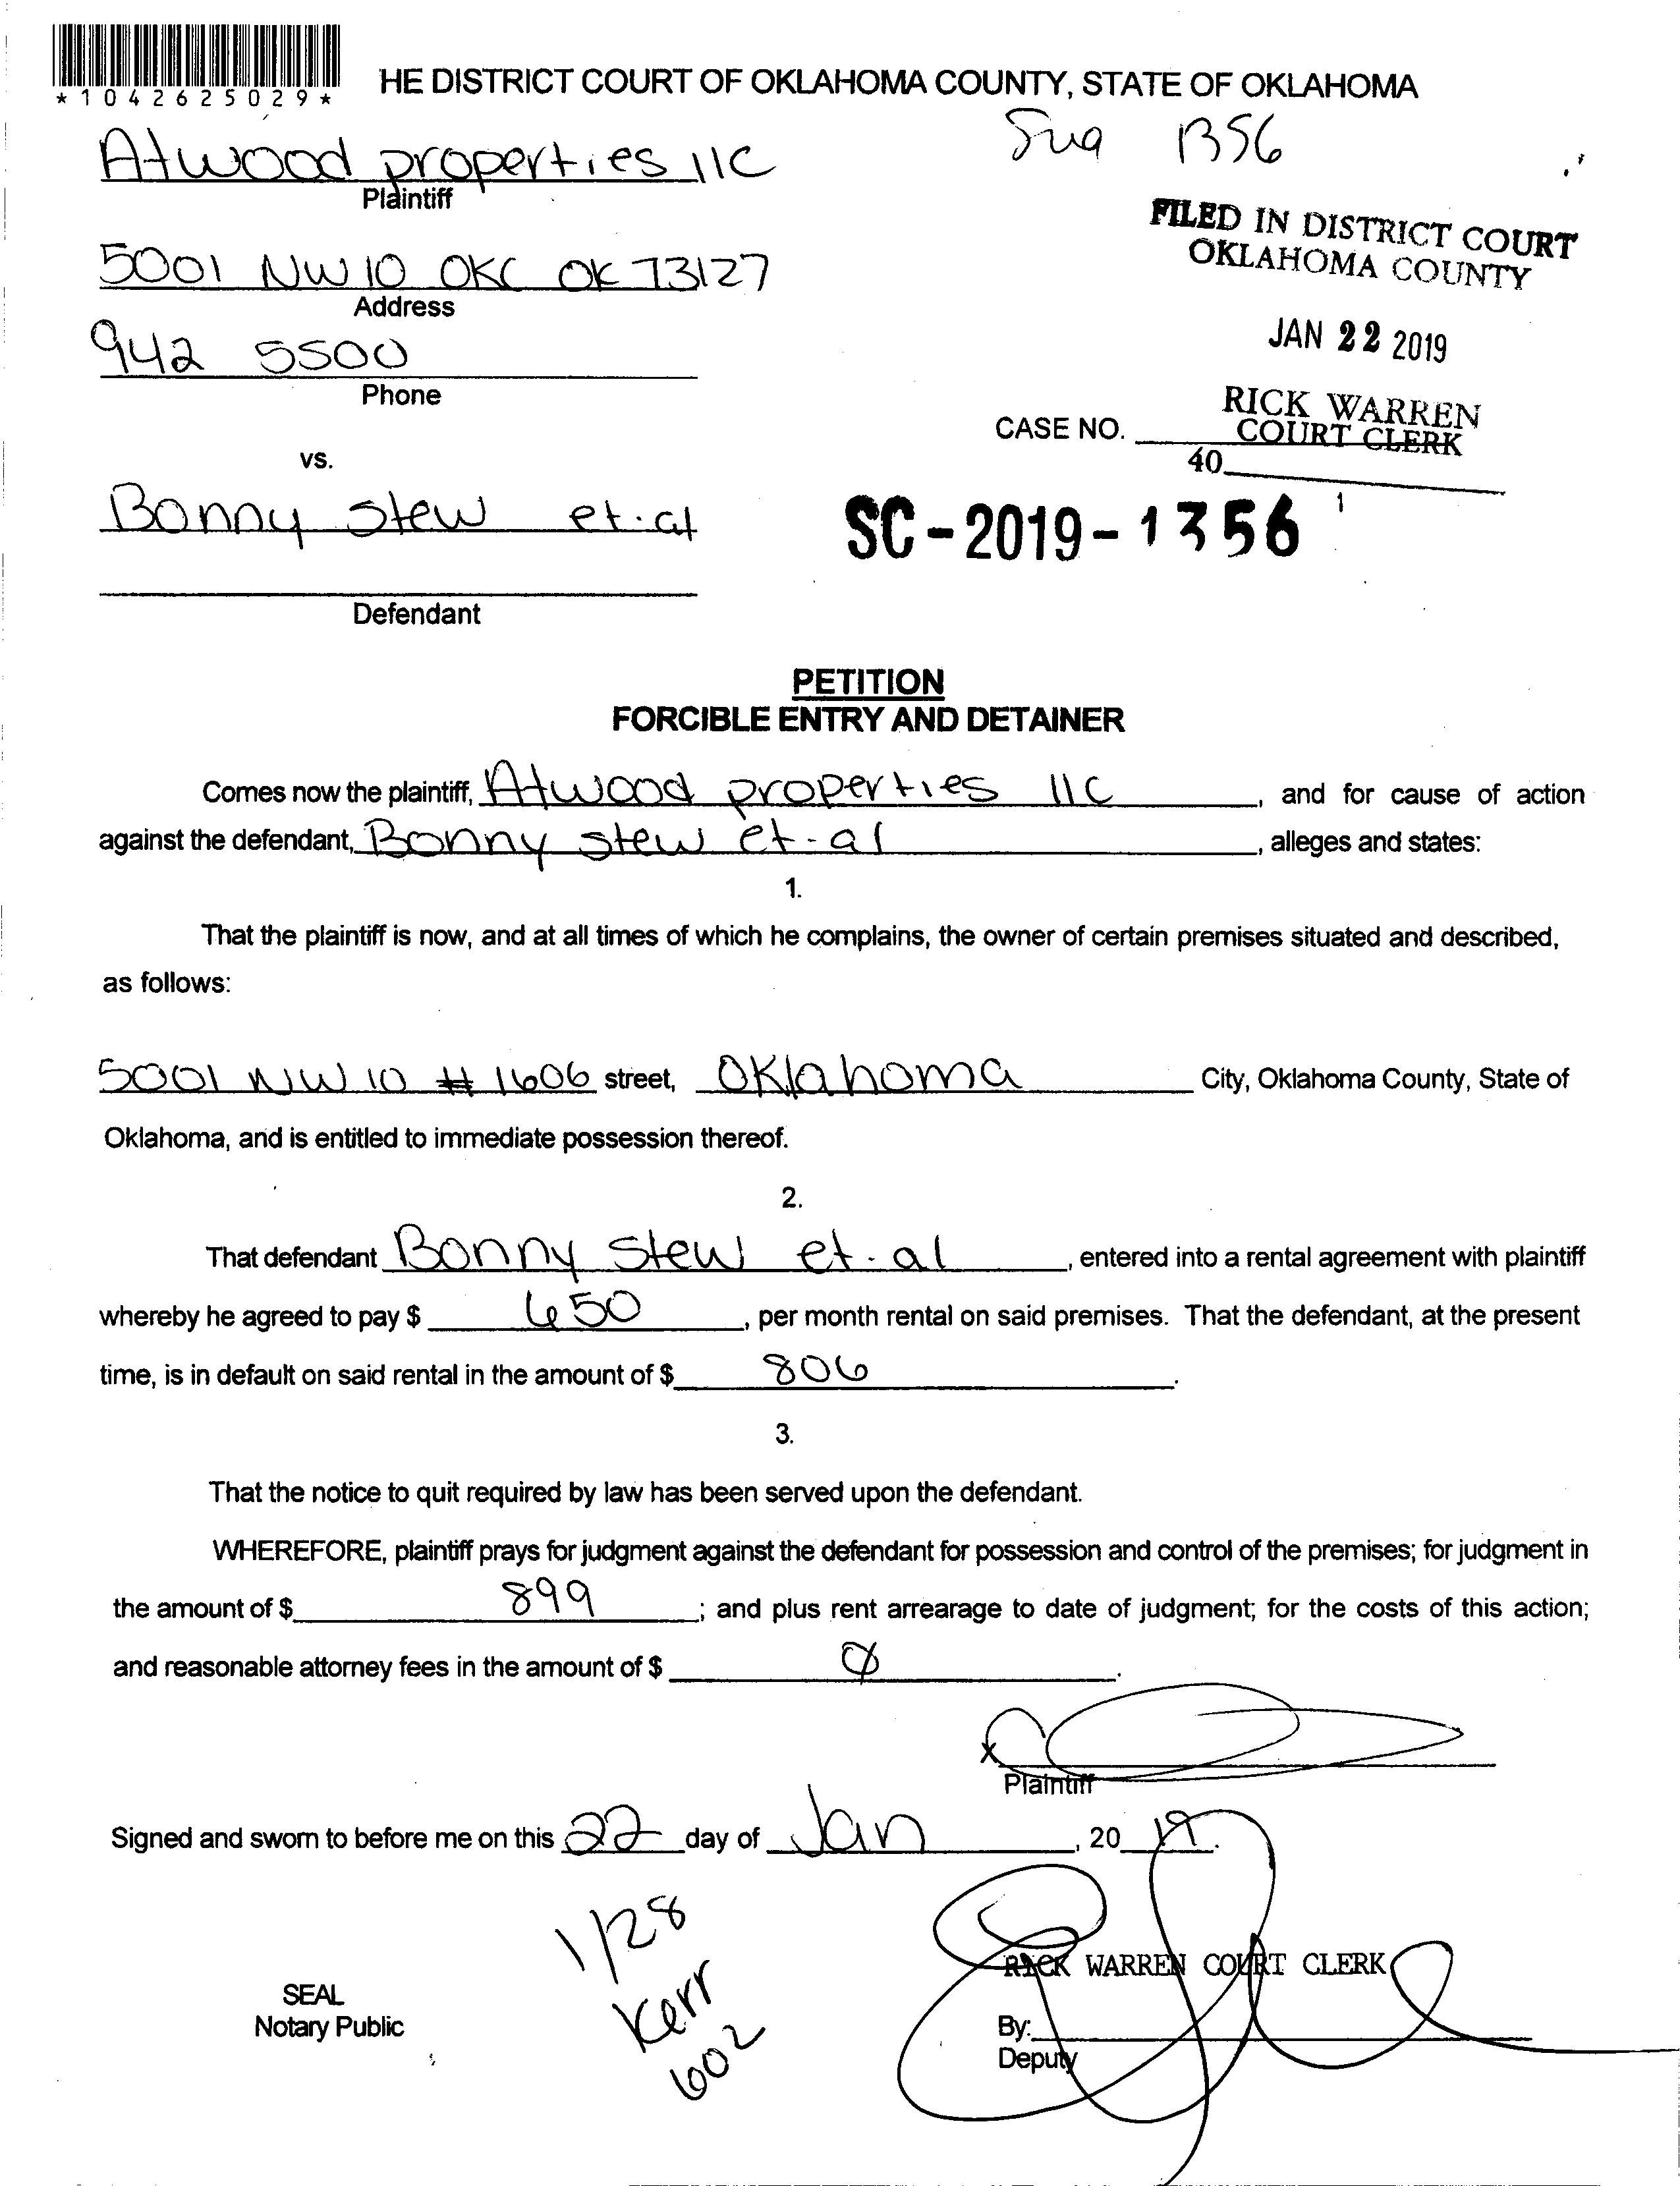 *1042625029*
HE DISTRICT COURT OF OKLAHOMA COUNTY, STATE OF OKLAHOMA
1356
Atwood properties llc
Plaintiff
FILED IN DISTRICT COURT
OKLAHOMA COUNTY
5001 NW 10 OKC OK 73127
Address
JAN 22 2019
942 5500
Phone
RICK WARREN
COURT CLERK
CASE NO.
40
vs.
Bonny Stew et.al
SC-2019-1356
Defendant
PETITION
FORCIBLE ENTRY AND DETAINER
Comes now the plaintiff, Atwood properties llc, and for cause of action
against the defendant, Bonny Stew et-al, alleges and states:
1.
That the plaintiff is now, and at all times of which he complains, the owner of certain premises situated and described,
as follows:
5001 NW 10 # 1606 street, Oklahoma City, Oklahoma County, State of
Oklahoma, and is entitled to immediate possession thereof.
2.
That defendant Bonny Stew et-al, entered into a rental agreement with plaintiff
whereby he agreed to pay $ 650, per month rental on said premises. That the defendant, at the present
time, is in default on said rental in the amount of $ 806.
3.
That the notice to quit required by law has been served upon the defendant.
WHEREFORE, plaintiff prays for judgment against the defendant for possession and control of the premises; for judgment in
the amount of $ 899; and plus rent arrearage to date of judgment; for the costs of this action;
and reasonable attorney fees in the amount of $ 0.
x
Plaintiff
Signed and sworn to before me on this 22 day of Jan, 20 19.
1/28
Kerr
602
RICK WARREN COURT CLERK
SEAL
Notary Public
By:
Deputy